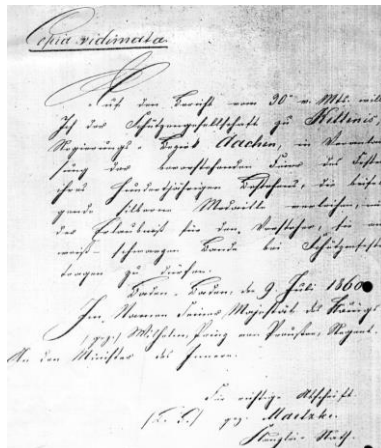 Copia vidimata.
Auf den Bericht vom 30ten v. Mts. will
Ich der Schützengesellschaft zu Kettenis,
Regierungs-Bezirk Aachen, in Veranlas
sung der bevorstehenden Feier des Festes
ihres hundertjährigen Bestehens, die beifol
gende silberne Medaille verleihen, mit
der Erlaubniß für den Vorsteher, sie am
weiß-schwarzen Bande bei Schützenfesten
tragen zu dürfen.
Baden-Baden, den 9. Juli 1860
Im Namen Seiner Majestät des Königs
(gez.) Wilhelm, Prinz von Preußen, Regent.
An den Minister des Innern.
Für richtige Abschrift
(L. S.) gez. Maetzke.
Kanzlei-Rath.